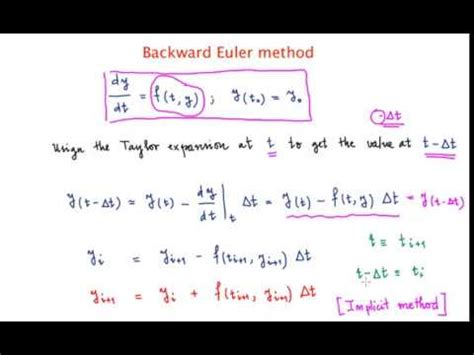 Backward Euler method
dy/dt = f(t, y) ; y(t₀) = y₀
-Δt
Usign the Taylor expansion at t to get the value at t-Δt
y(t-Δt) = y(t) - dy/dt|ₜ Δt = y(t) - f(t,y) Δt = y(t-Δt)
t ≡ tᵢ₊₁
yᵢ = yᵢ₊₁ - f(tᵢ₊₁, yᵢ₊₁) Δt
t-Δt ≡ tᵢ
yᵢ₊₁ = yᵢ + f(tᵢ₊₁, yᵢ₊₁) Δt
[Implicit method]